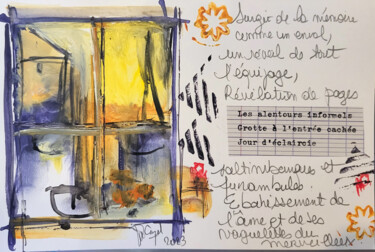 Surgir de la mémoire
comme un envol,
un de tout
l'équipage,
Révélation de pages
Les alentours informels
Grotte à l'entrée cachée
Jour d'éclaircie
saltimbanques et
funambule.
Ébahissement de
l'âme et de ses
vaguelettes du
merveilleux
2023